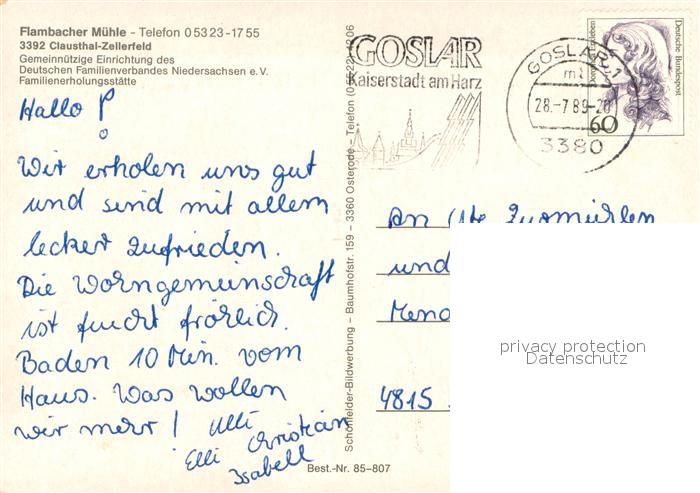 Flambacher Mühle - Telefon 0 53 23 - 17 55
3392 Clausthal-Zellerfeld
Gemeinnützige Einrichtung des
Deutschen Familienverbandes Niedersachsen e. V.
Familienerholungsstätte
Hallo !
Wir erholen uns gut
und sind mit allem
lecker zufrieden.
Die Wohngemeinschaft
ist feucht fröhlich.
Baden 10 Min. vom
Haus. Was wollen
wir mehr! Ulli
Elli Christian
Isabell
Best.-Nr. 85-807
Schönfelder-Bildwerbung - Baumhofstr. 159 - 3360 Osterode - Telefon (0 55 22)
GOSLAR
Kaiserstadt am Harz
GOSLAR 1
28.-7 89-20
3380
Deutsche Bundespost
60
An Ute
und
4815
privacy protection
Datenschutz